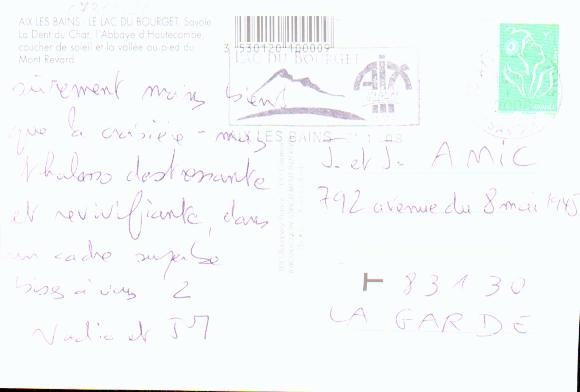 AIX LES BAINS - LE LAC DU BOURGET. Savoie
La Dent du Chat, l'Abbaye d'Hautecombe,
coucher de soleil et la vallée au pied du
Mont Revard.
3 530120 100009
LAC DU BOURGET
AIX
AIX LES BAINS
sûrement moins bien
que la croisière - mais
thalasso destressante
et revivifiante, dans
un cadre superbe
bises à vous 2
Nadia et JM
J. et J. AMIC
792 avenue du 8 mai 1945
T 83130
LA GARDE